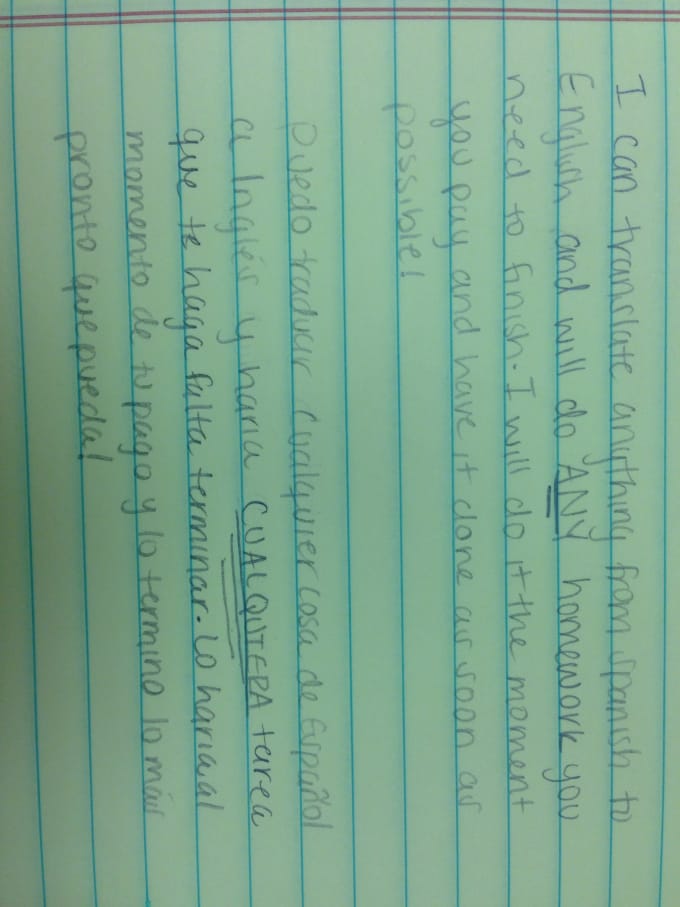 I can translate anything from spanish to
English and will do ANY homework you
need to finish. I will do it the moment
you pay and have it done as soon as
possible!
Puedo traducir cualquier cosa de Español
a Inglés y haria CUALQUIERA tarea
que te haga falta terminar. Lo haria al
momento de tu pago y lo termino lo más
pronto que pueda!